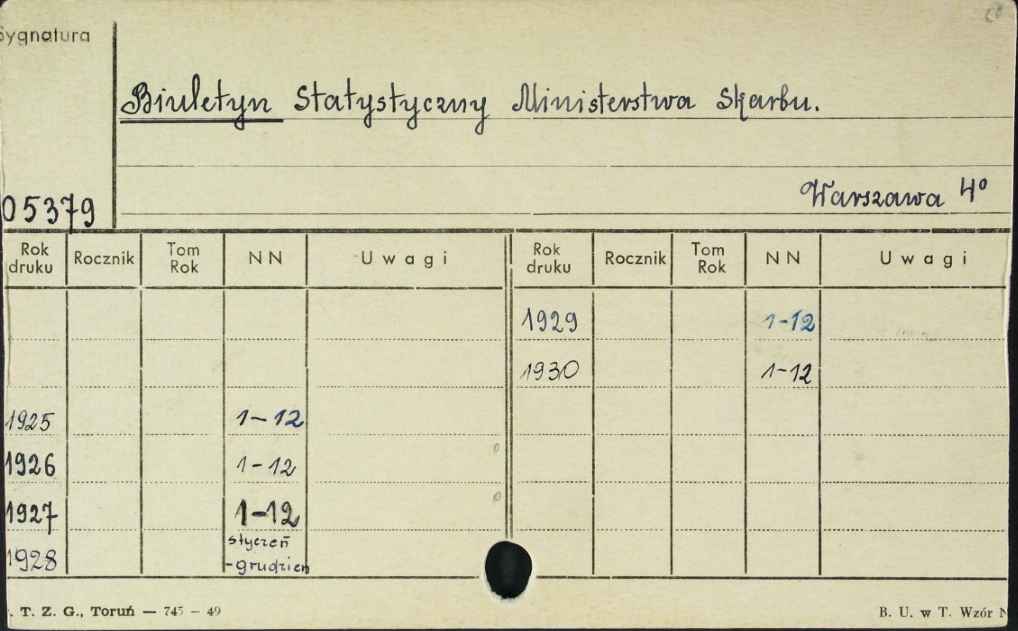 Sygnatura
Biuletyn Statystyczny Ministerstwa Skarbu.
Warszawa 4°
05379
Rok druku Rocznik Tom Rok NN Uwagi Rok druku Rocznik Tom Rok NN Uwagi
1929 1-12
1930 1-12
1925 1-12
1926 1-12
1927 1-12
1928 styczeń
-grudzień
T. Z. G., Toruń — 745 — 49 B. U. w T. Wzór